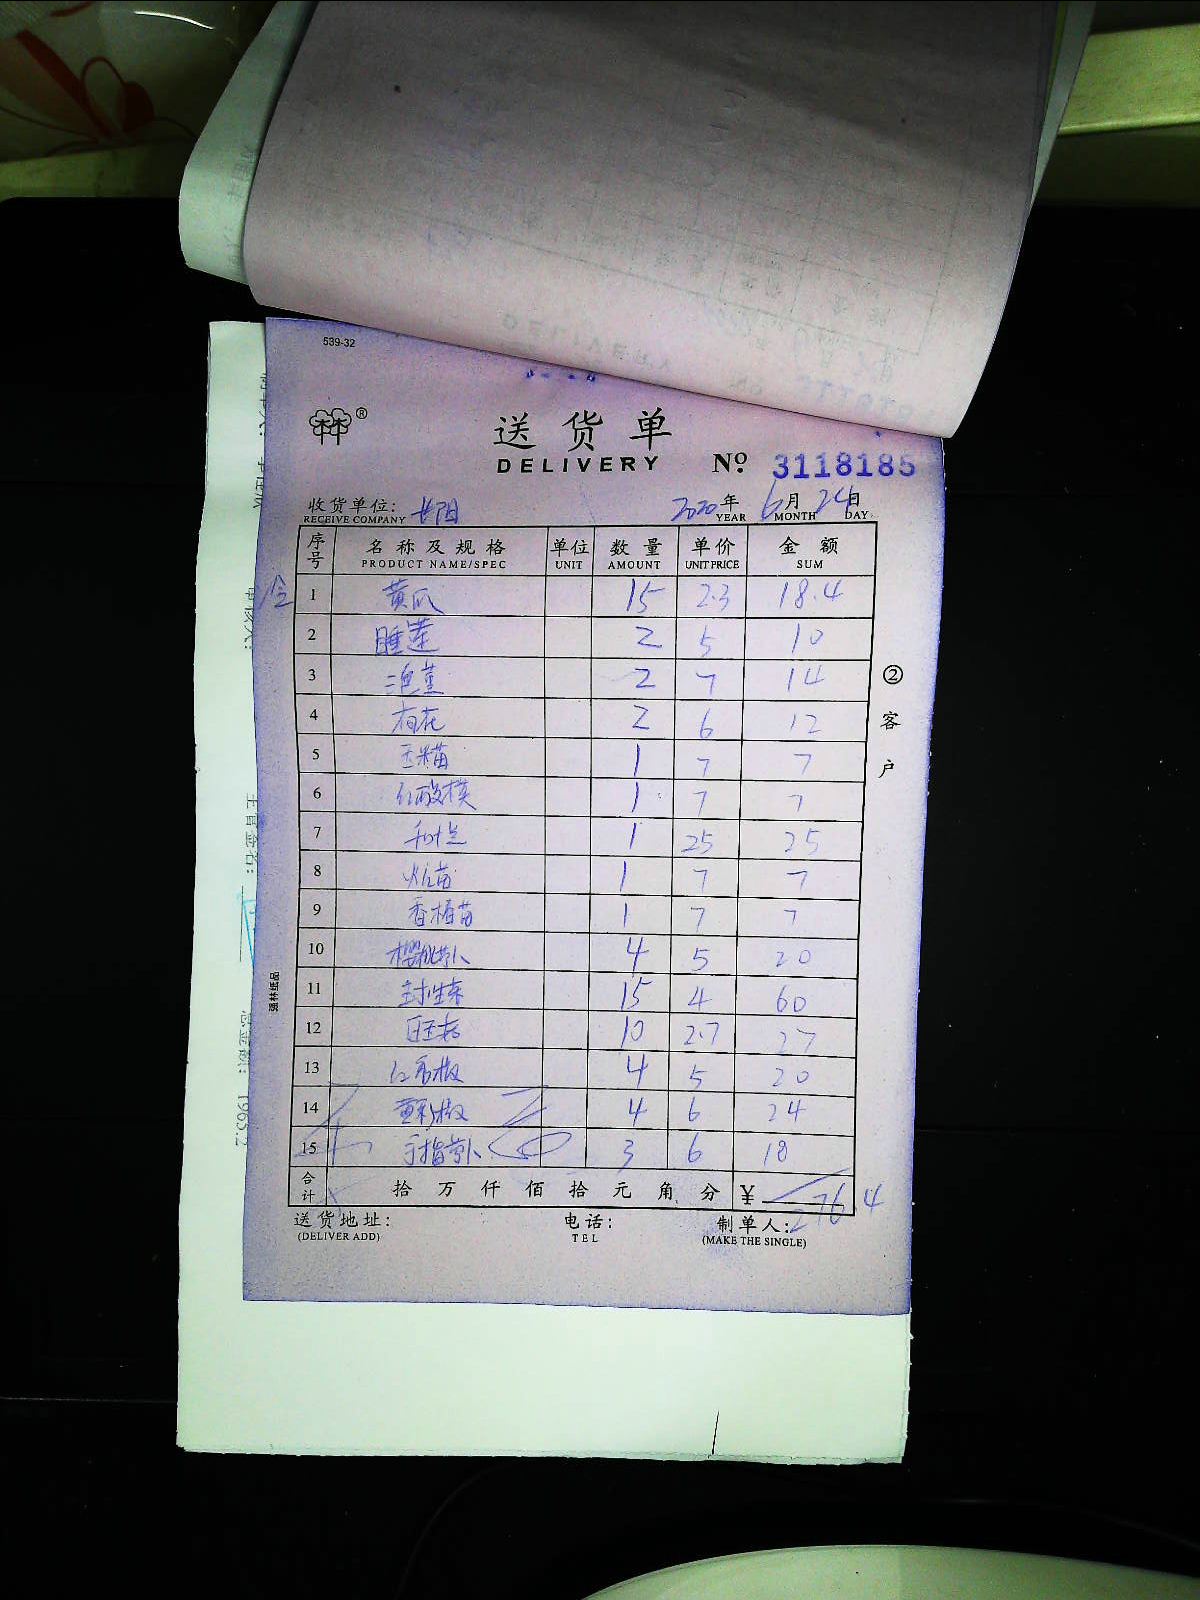 539-32
®
送货单
DELIVERY
Nº 3118185
收货单位: 长阳 2020年 6月 24日
RECEIVE COMPANY YEAR MONTH DAY
序号 名称及规格 单位 数量 单价 金额
PRODUCT NAME/SPEC UNIT AMOUNT UNIT PRICE SUM
1 黄瓜 15 2.3 18.4
2 睡莲 2 5 10
3 2 7 14
4 荷花 2 6 12
5 玉米苗 1 7 7
6 红酸模 1 7 7
7 1 25 25
8 苗 1 7 7
9 香椿苗 1 7 7
10 樱桃萝卜 4 5 20
11 15 4 60
12 10 2.7 27
13 红彩椒 4 5 20
14 黄彩椒 4 6 24
15 手指萝卜 3 6 18
合计 拾 万 仟 佰 拾 元 角 分 ¥ 276.4
送货地址: 电话: 制单人:
(DELIVER ADD) TEL (MAKE THE SINGLE)
② 客户
强林纸品
主管签名:
总金额: 1963.2
审核人: